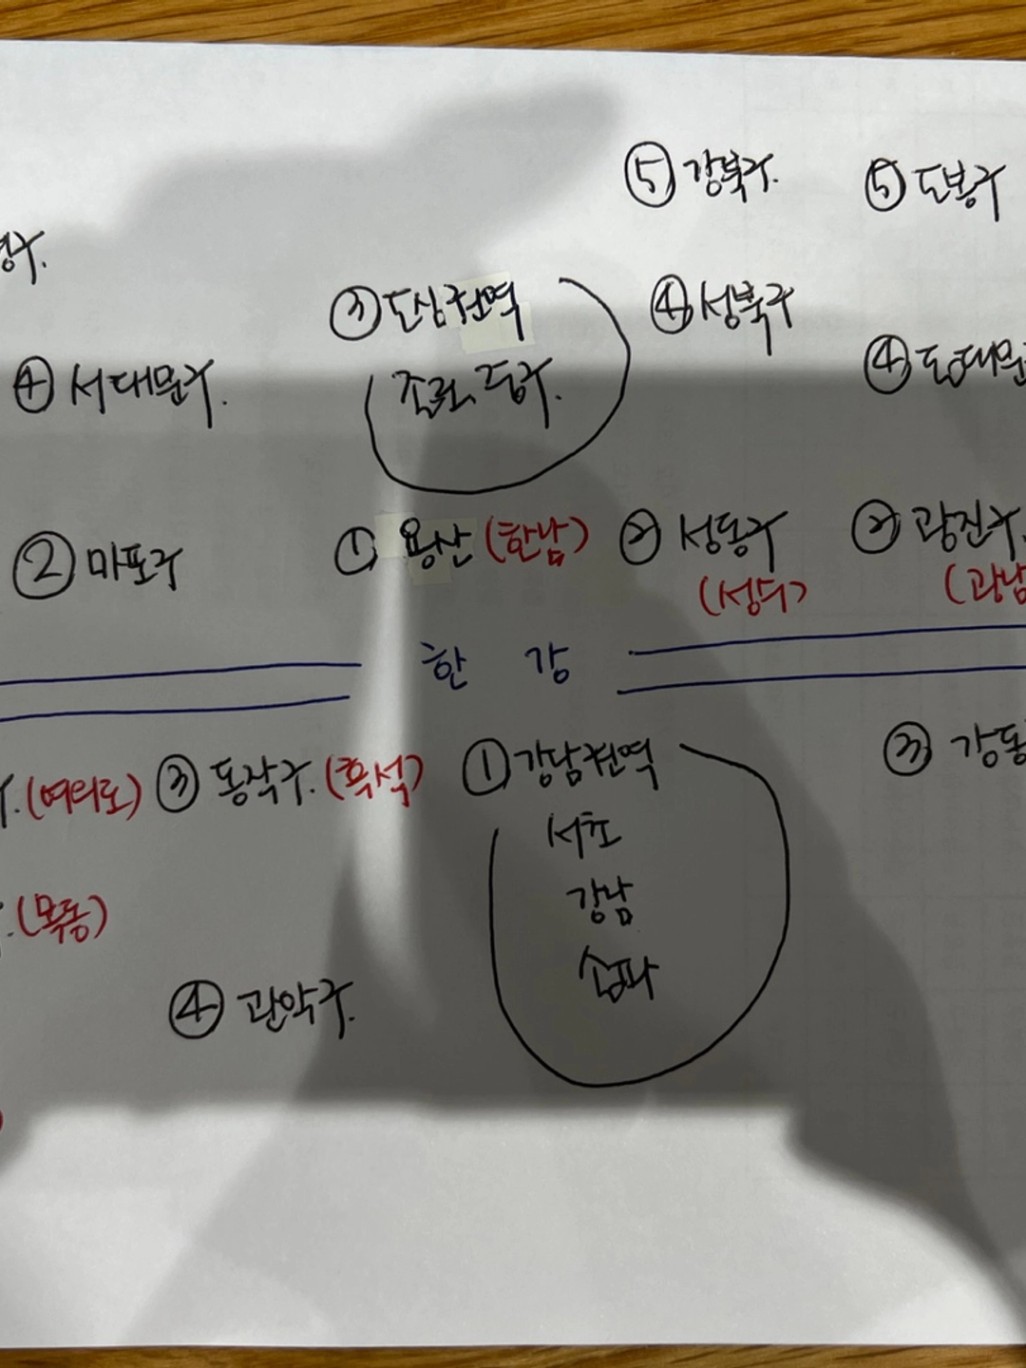 ⑤ 강북구.
⑤ 도봉구
③ 도심권역
④ 성북구
④ 서대문구.
종로, 중구.
④ 동대문
① 용산 (한남)
② 성동구
② 광진구.
② 마포구
(성수)
(광남
한 강
구. (여의도)
③ 동작구. (흑석)
① 강남권역
③ 강동
서초
강남
(목동)
송파
④ 관악구.